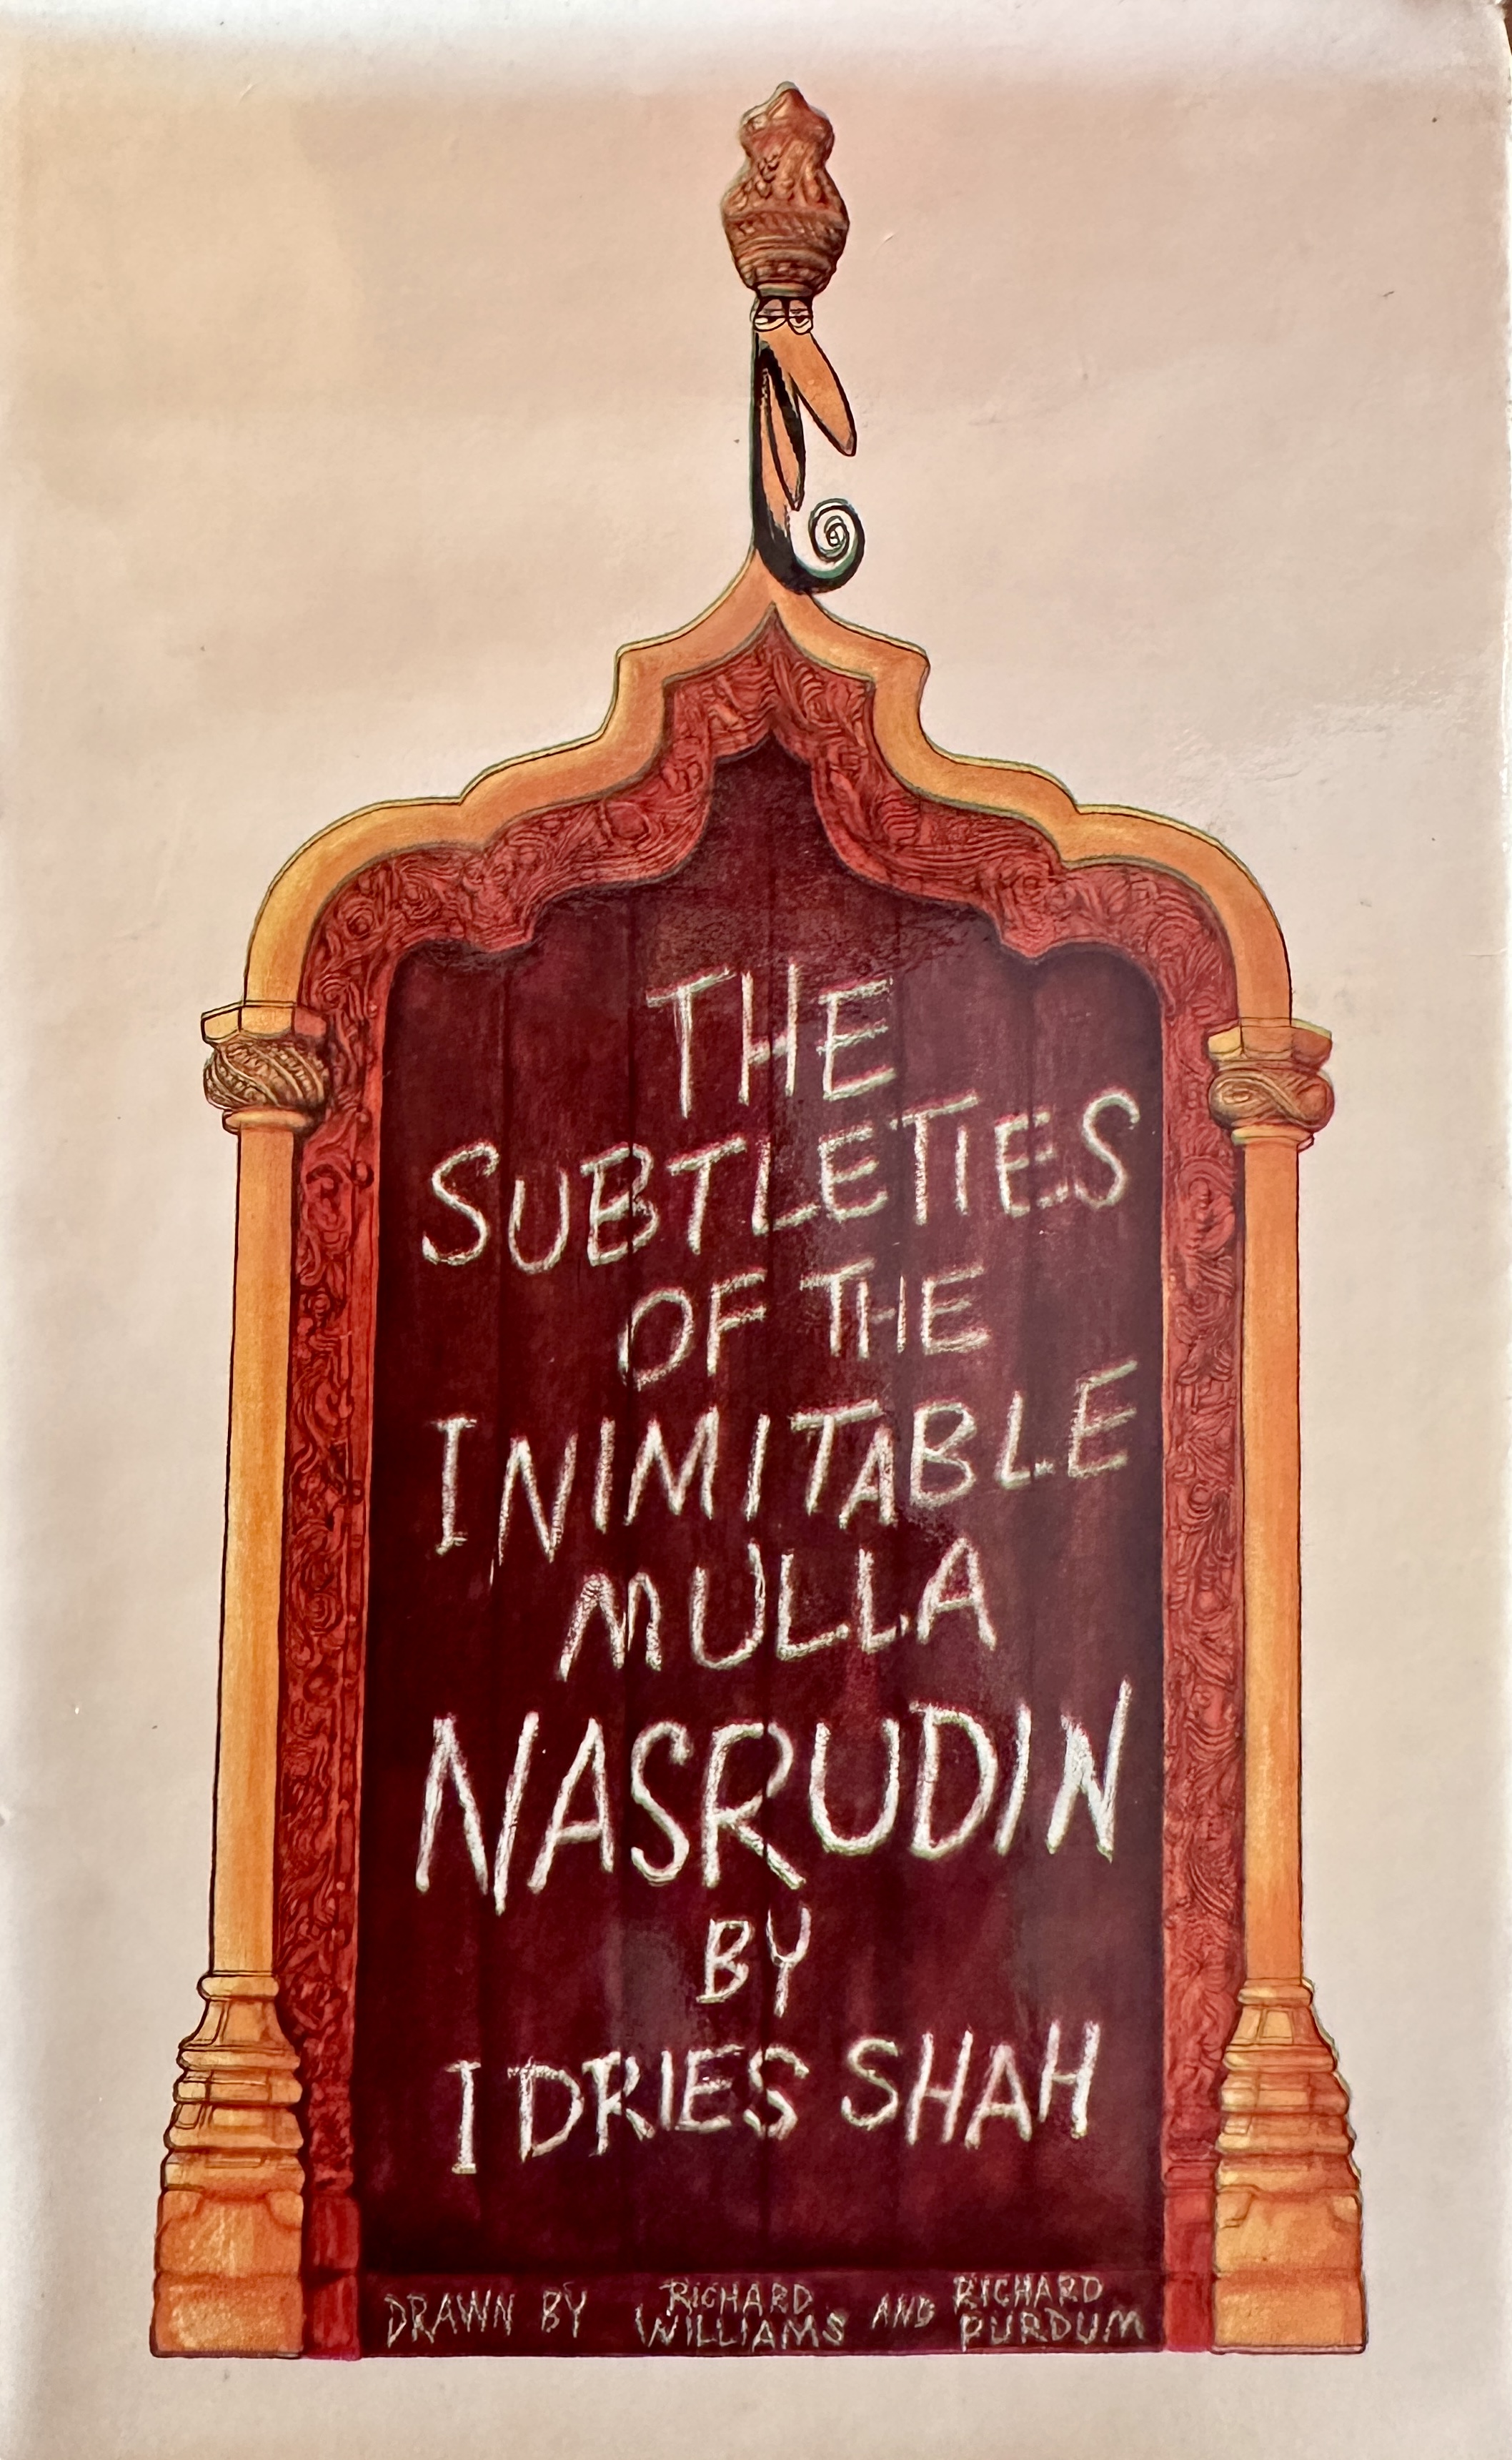 THE
SUBTLETIES
OF THE
INIMITABLE
MULLA
NASRUDIN
BY
IDRIES SHAH
DRAWN BY RICHARD WILLIAMS AND RICHARD PURDUM